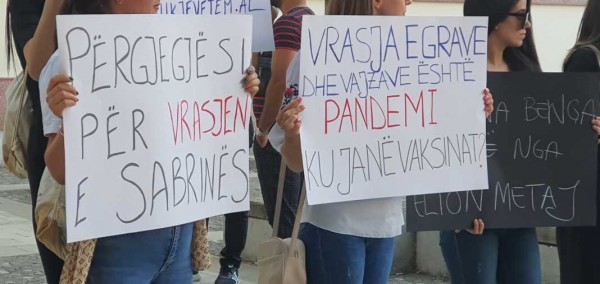 UKJEVETEM.AL
PËRGJEGJËSI
PËR VRASJEN
E SABRINËS
VRASJA E GRAVE
DHE VAJZAVE ËSHTË
PANDEMI
KU JANË VAKSINAT?
BENGA
NGA
ELION METAJ